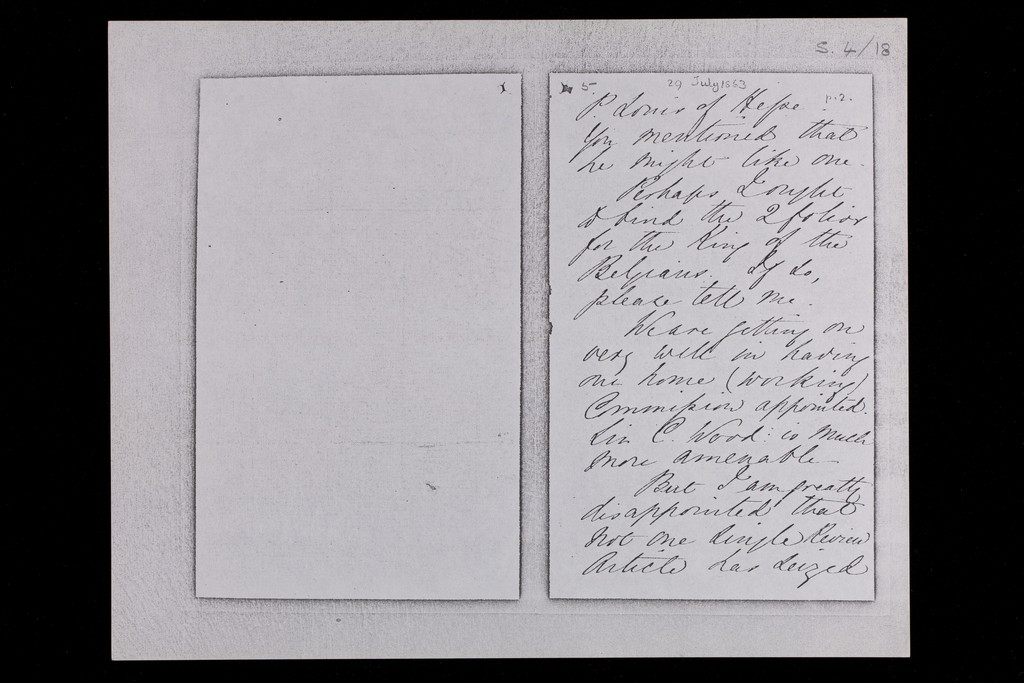 S. 4/18
5. 29 July 1863
P. Louis of Hesse. p.2.
You mentioned that
he might like one.
Perhaps I ought
to bind the 2 folios
for the King of the
Belgians. If so,
please tell me.
We are getting on
very well in having
our home (working)
Commission appointed.
Sir C. Wood: is much
more amenable
But I am greatly
disappointed that
not one single Review
Article has seized